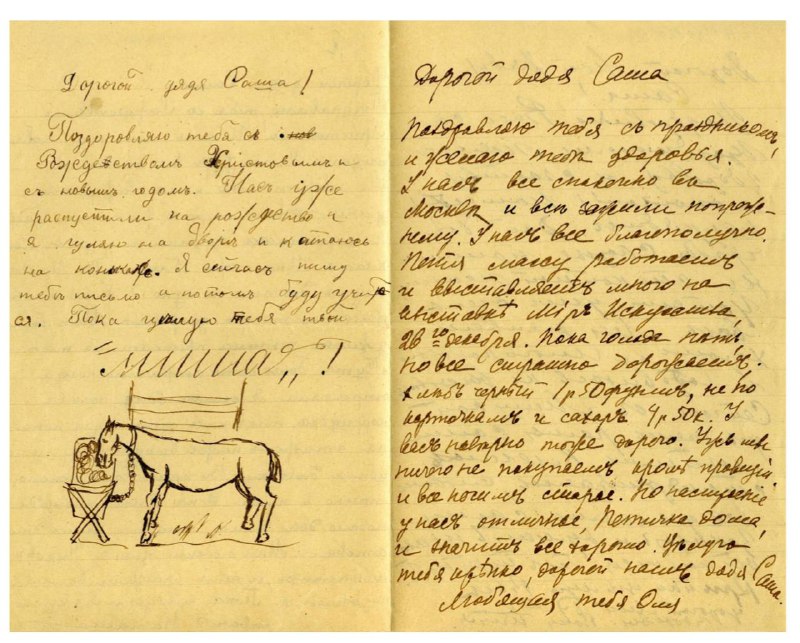 Дорогой дядя Саша!
Поздоровляю тебя съ
Рождествомъ Христовымъ и
съ новымъ годомъ. Насъ уже
распустили на рождество и
я гуляю на дворѣ и катаюсь
на конькахъ. Я сейчасъ пишу
тебѣ письмо а потомъ буду учить
ся. Пока цѣлую тебя твой
"Миша"!
Дорогой дядя Саша
Поздравляю тебя съ праздникомъ,
и желаю тебѣ здоровья.
У насъ все спокойно въ
Москвѣ и всѣ зажили попреж-
нему. У насъ все благополучно.
Петя массу работаетъ
и выставляетъ много на
выставкѣ Міръ Искусства,
26го декабря. Пока голода нѣтъ,
но все страшно дорожаетъ.
Хлѣбъ черный 1р 50 фунтъ, не по
карточкамъ и сахаръ 4р 50к. У
васъ навѣрно тоже дорого. Ужъ мы
ничего не покупаемъ кромѣ провизіи
и все носимъ старое. Но настроеніе
у насъ отличное, Петичка дома,
и значитъ все хорошо. Цѣлую
тебя крѣпко, дорогой нашъ дядя Саша.
Любящая тебя Оля